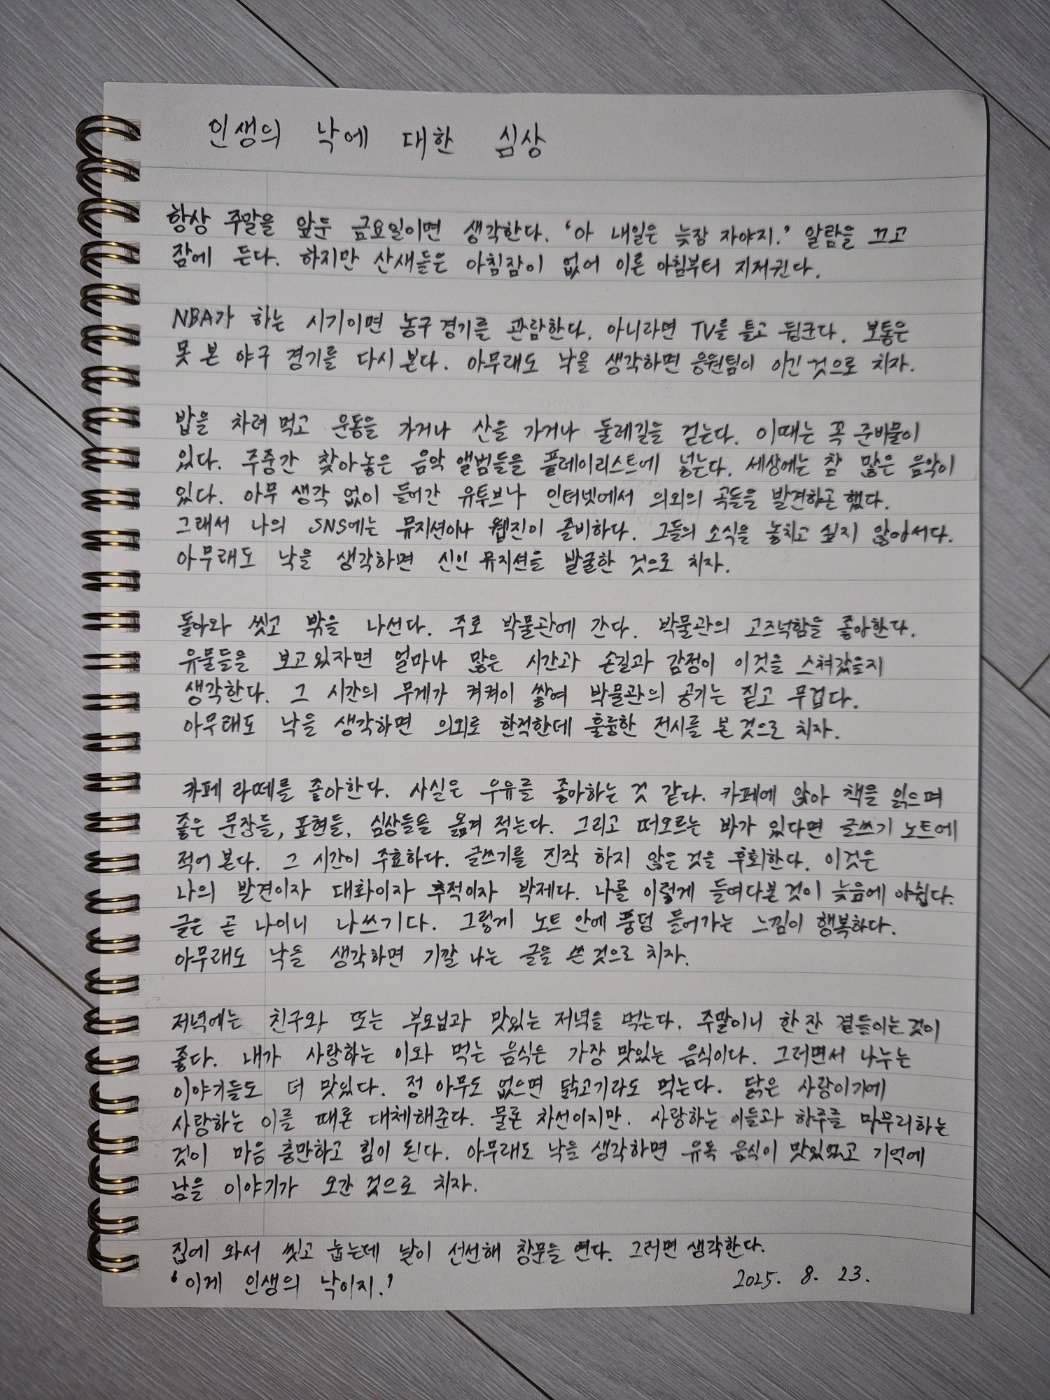 인생의 낙에 대한 심상
항상 주말을 앞둔 금요일이면 생각한다. '아 내일은 늦잠 자야지.' 알람을 끄고
잠에 든다. 하지만 산새들은 아침잠이 없어 이른 아침부터 지저귄다.
NBA가 하는 시기이면 농구 경기를 관람한다. 아니라면 TV를 틀고 뒹군다. 보통은
못 본 야구 경기를 다시 본다. 아무래도 낙을 생각하면 응원팀이 이긴 것으로 치자.
밥을 차려 먹고 운동을 가거나 산을 가거나 둘레길을 걷는다. 이때는 꼭 준비물이
있다. 주중간 찾아놓은 음악 앨범들을 플레이리스트에 넣는다. 세상에는 참 많은 음악이
있다. 아무 생각 없이 들어간 유투브나 인터넷에서 의외의 곡들을 발견하곤 했다.
그래서 나의 SNS에는 뮤지션이나 웹진이 즐비하다. 그들의 소식을 놓치고 싶지 않아서다.
아무래도 낙을 생각하면 신인 뮤지션을 발굴한 것으로 치자.
돌아와 씻고 밖을 나선다. 주로 박물관에 간다. 박물관의 고즈넉함을 좋아한다.
유물들을 보고있자면 얼마나 많은 시간과 손길과 감정이 이것을 스쳐갔을지
생각한다. 그 시간의 무게가 켜켜이 쌓여 박물관의 공기는 짙고 무겁다.
아무래도 낙을 생각하면 의외로 한적한데 훌륭한 전시를 본 것으로 치자.
카페 라떼를 좋아한다. 사실은 우유를 좋아하는 것 같다. 카페에 앉아 책을 읽으며
좋은 문장들, 표현들, 심상들을 옮겨 적는다. 그리고 떠오르는 바가 있다면 글쓰기 노트에
적어 본다. 그 시간이 주효하다. 글쓰기를 진작 하지 않은 것을 후회한다. 이것은
나의 발견이자 대화이자 추적이자 박제다. 나를 이렇게 들여다본 것이 늦음에 아쉽다.
글은 곧 나이니 나쓰기다. 그렇게 노트 안에 풍덩 들어가는 느낌이 행복하다.
아무래도 낙을 생각하면 기깔 나는 글을 쓴 것으로 치자.
저녁에는 친구와 또는 부모님과 맛있는 저녁을 먹는다. 주말이니 한잔 곁들이는 것이
좋다. 내가 사랑하는 이와 먹는 음식은 가장 맛있는 음식이다. 그러면서 나누는
이야기들도 더 맛있다. 정 아무도 없으면 닭고기라도 먹는다. 닭은 사랑이기에
사랑하는 이를 때론 대체해준다. 물론 차선이지만. 사랑하는 이들과 하루를 마무리하는
것이 마음 충만하고 힘이 된다. 아무래도 낙을 생각하면 유독 음식이 맛있었고 기억에
남을 이야기가 오간 것으로 치자.
집에 와서 씻고 눕는데 날이 선선해 창문을 연다. 그러면 생각한다.
'이게 인생의 낙이지.' 2025. 8. 23.